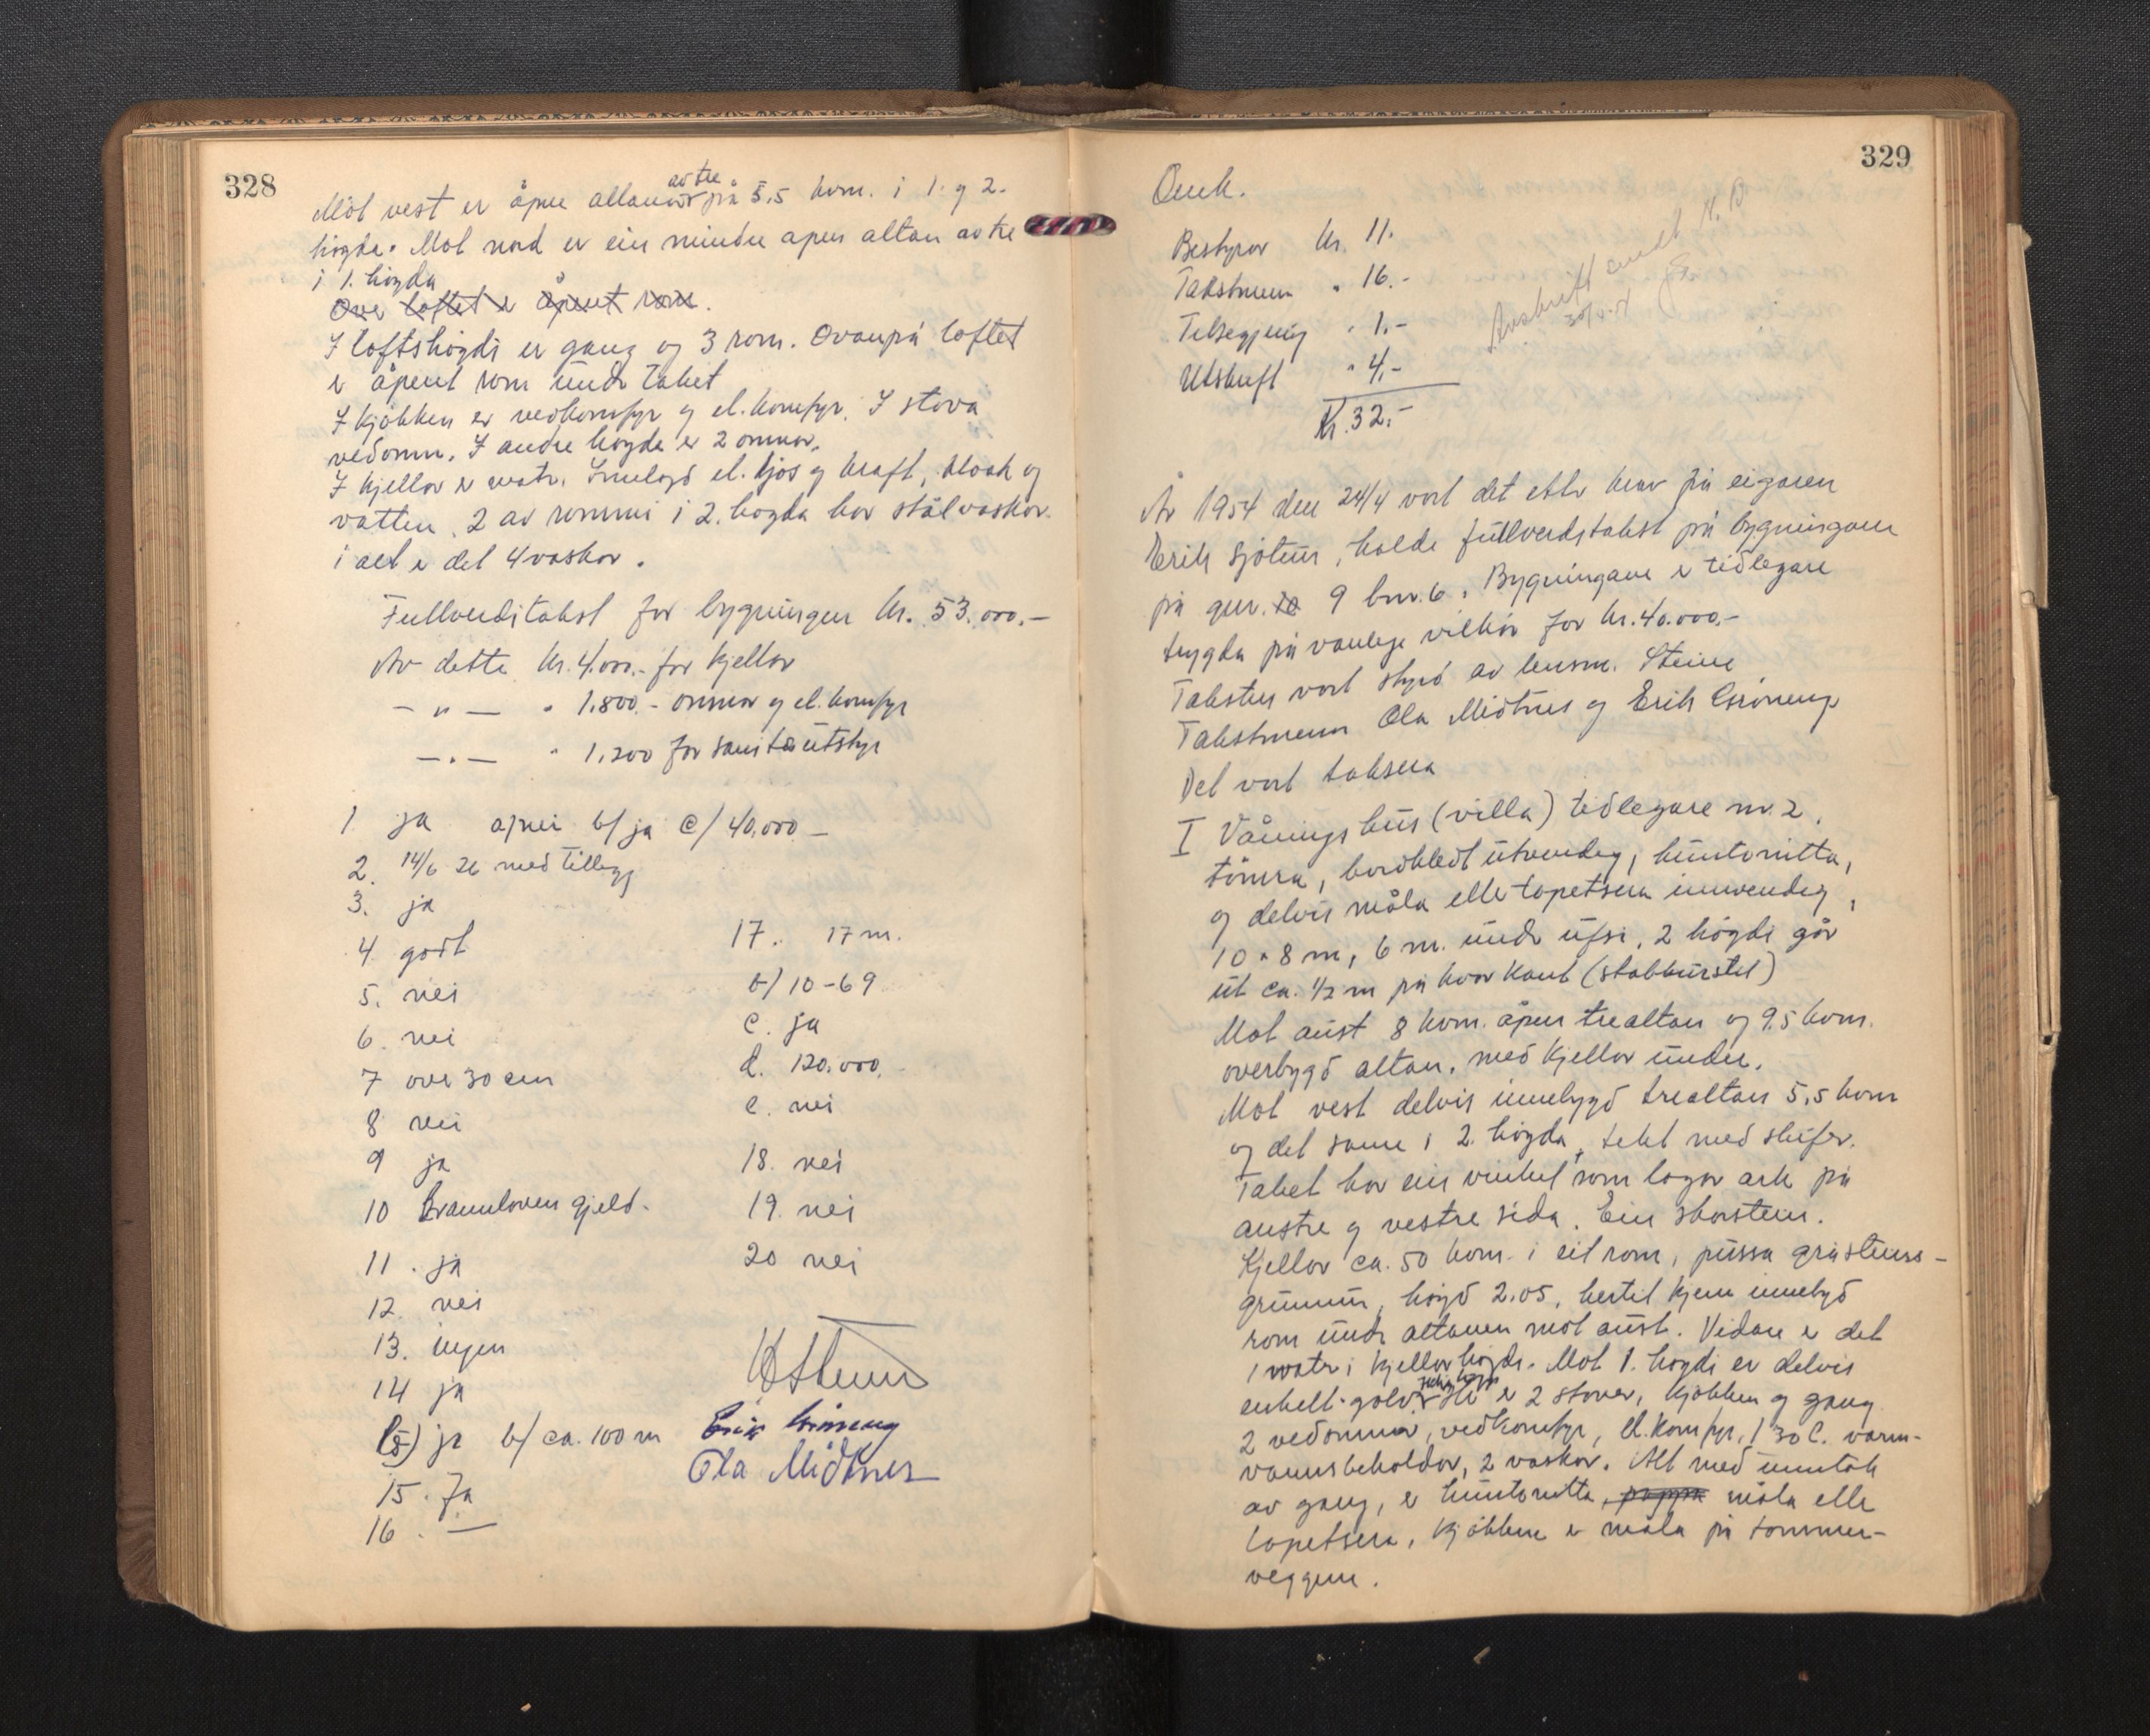 328
Mot vest er åpne altanar av tre på 5,5 kvm. i 1. og 2.
høgda. Mot nord er ein mindre åpen altan av tre
i 1. høgda
Over loftet er åpent rom.
I loftshøgdi er gang og 3 rom. Ovanpå loftet
er åpent rom under taket
I kjøkken er vedkomfyr og el. komfyr. I stova
vedomn. I andre høgda er 2 omnar.
I kjellar er matr. Innlagd el. ljos og kraft, kloak og
vatten. 2 av rommi i 2. høgda har stålvaskar.
i alt er det 4 vaskar.
Fullverditakst for bygningen kr. 53.000.-
Av dette kr. 4.000.- for kjellar
- " - " 1.800.- omnar og el. komfyr
- " - " 1.200 for sanitærutstyr
1. ja a/ nei b/ ja c/ 40,000 -
2. 14/6 26 med tillegg
3. ja
4. godt
5. nei
6. nei
7 over 30 cm
8 nei
9 ja
10 Brannloven gjeld.
11. ja
12. nei
13. ingen
14 ja
15) ja b/ ca. 100 m
15. Ja
16. —
17. 17 m.
b/ 10-69
c. ja
d. 120.000.
e. nei
18. nei
19. nei
20 nei
Erik Grøneng
Ola Midtnes
329
Omk.
Bestyrar kr. 11.
Takstmenn " 16.-
Tilsegjing " 1.-
Utskrift " 4.-
Kr. 32.-
Avskrift sendt N. B
År 1954 den 24/4 vart det etter krav frå eigaren
Erik Sjøtun, halde fullverdstakst på bygningane
på gnr. 10 9 bnr. 6. Bygningane er tidlegare
trygda på vanlege vilkår for kr. 40.000.-
Taksten vart styrd av lensm. Steine
Takstmenn Ola Midtnes og Erik Grøneng
Det vart taksera
I Våningshus (villa) tidlegare nr. 2.
tømra, bordkledt utvendig, huntonitta,
og delvis måla eller tapetsera innvendig,
10 x 8 m, 6 m. under ufsi, 2 høgdi går
ut ca. 1/2 m på kvar kant (stabburstil)
Mot aust 8 kvm. åpen trealtan og 9.5 kvm.
overbygd altan, med kjellar under.
Mot vest delvis innebygd trealtan 5,5 kvm
og det same i 2. høgda, tekt med skifer.
Taket har ein vinkel som lagar ark på
austre og vestre sida. Ein skorstein.
Kjellar ca. 50 kvm. i eit rom, pussa gråsteins-
grunnmur, høgd 2.05, hertil kjem innebygd
rom under altanen mot aust. Vidare er det
1 matr i kjellarhøgdi. Mot 1. høgdi er delvis
enkelt golv. er 2 stover, kjøkken og gang
2 vedomnar, vedkomfyr, el. komfyr, 1 30 l. varm-
vannsbehaldar, 2 vaskar. Alt med unntak
av gang, er huntonitta, pappa måla eller
tapetsera, kjøkken er måla på tømmer-
veggene.